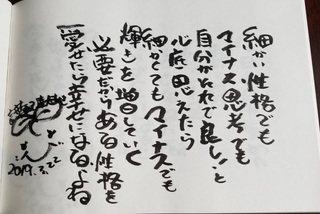 細かい性格でも
マイナス思考でも
自分がそれで良しと
心底思えたら
細かくてもマイナスでも
輝きを増していく
必要だからある性格を
愛せたら幸せになるよね
とんび
2019.5.22